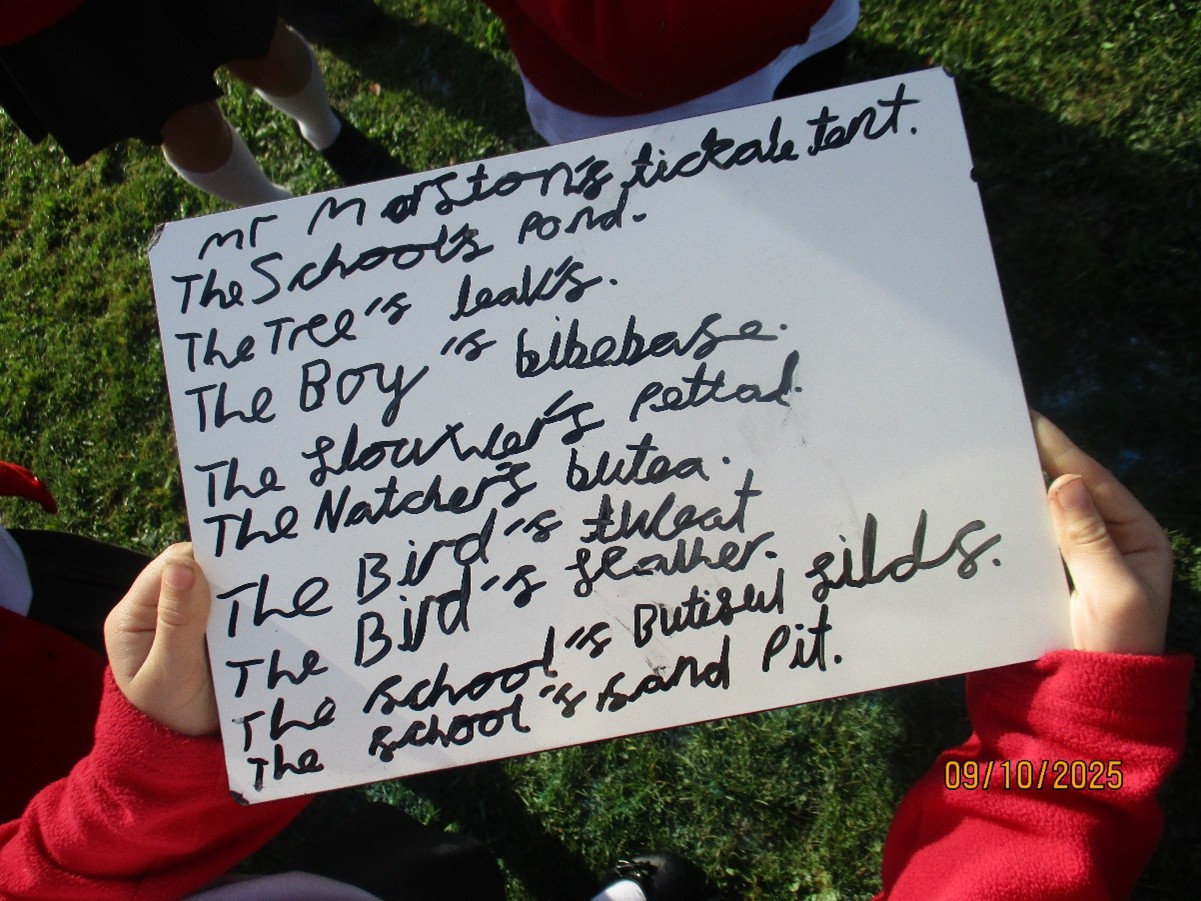 Mr Marston's tickale tent.
The School's pond.
The Tree's leak's.
The Boy's bibebase.
The flower's pettad.
The Natcher's butea.
The Bird's thleat
The Bird's feather.
The school's Butiful filds.
The school's sand Pit.
09/10/2025